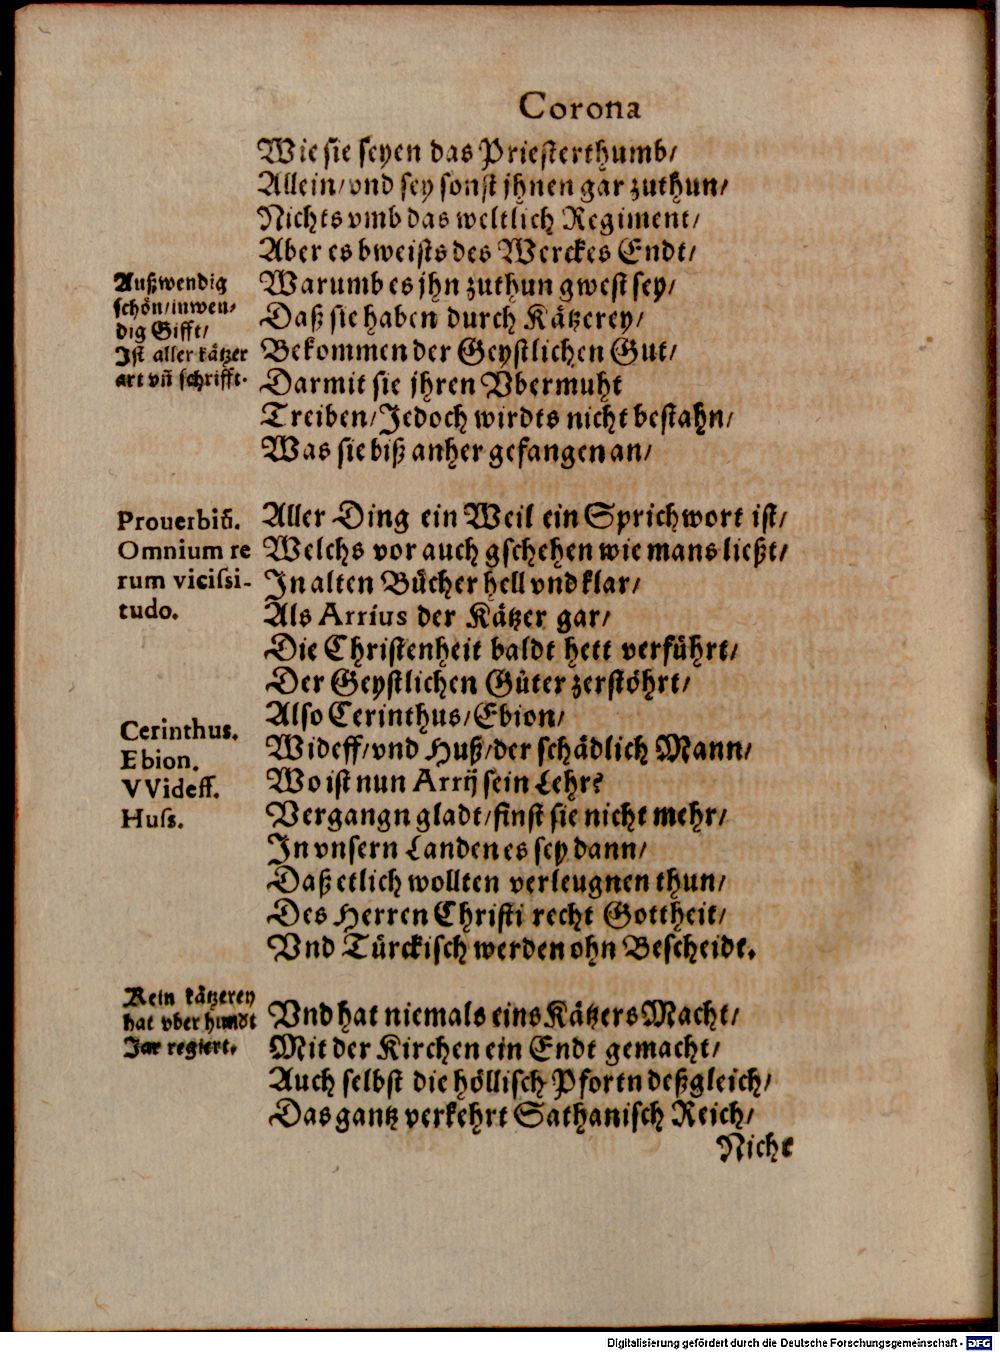 Corona
Wie sie seyen das Priesterthumb/
Allein/vnd sey sonst jhnen gar zuthun/
Nichts vmb das weltlich Regiment/
Aber es bweists des Werckes Endt/
Außwendig
schön/inwen/
dig Gifft/
Ist aller kätzer
art vñ schrifft.
Warumb es jhn zuthun gwest sey/
Daß sie haben durch Kätzerey/
Bekommen der Geystlichen Gut/
Darmit sie jhren Vbermuht
Treiben/Jedoch wirdts nicht bestahn/
Was sie biß anher gefangen an/
Prouerbiū.
Omnium re
rum vicissi-
tudo.
Aller Ding ein Weil ein Sprichwort ist/
Welchs vor auch gschehen wie mans ließt/
In alten Bücher hell vnd klar/
Als Arrius der Kätzer gar/
Die Christenheit baldt hett verführt/
Der Geystlichen Güter zerstöhrt/
Cerinthus.
Ebion.
VVideff.
Huss.
Also Cerinthus/Ebion/
Wideff/vnd Huß/der schädlich Mann/
Wo ist nun Arrij sein Lehr?
Vergangn gladt/finst sie nicht mehr/
In vnsern Landen es sey dann/
Daß etlich wollten verleugnen thun/
Des Herren Christi recht Gottheit/
Vnd Türckisch werden ohn Bescheidt.
Kein kätzerey
hat vber hundt
Jar regiert.
Vnd hat niemals eins Kätzers Macht/
Mit der Kirchen ein Endt gemacht/
Auch selbst die höllisch Pfortn deßgleich/
Das gantz verkehrt Sathanisch Reich/
Nicht
Digitalisierung gefördert durch die Deutsche Forschungsgemeinschaft - DFG